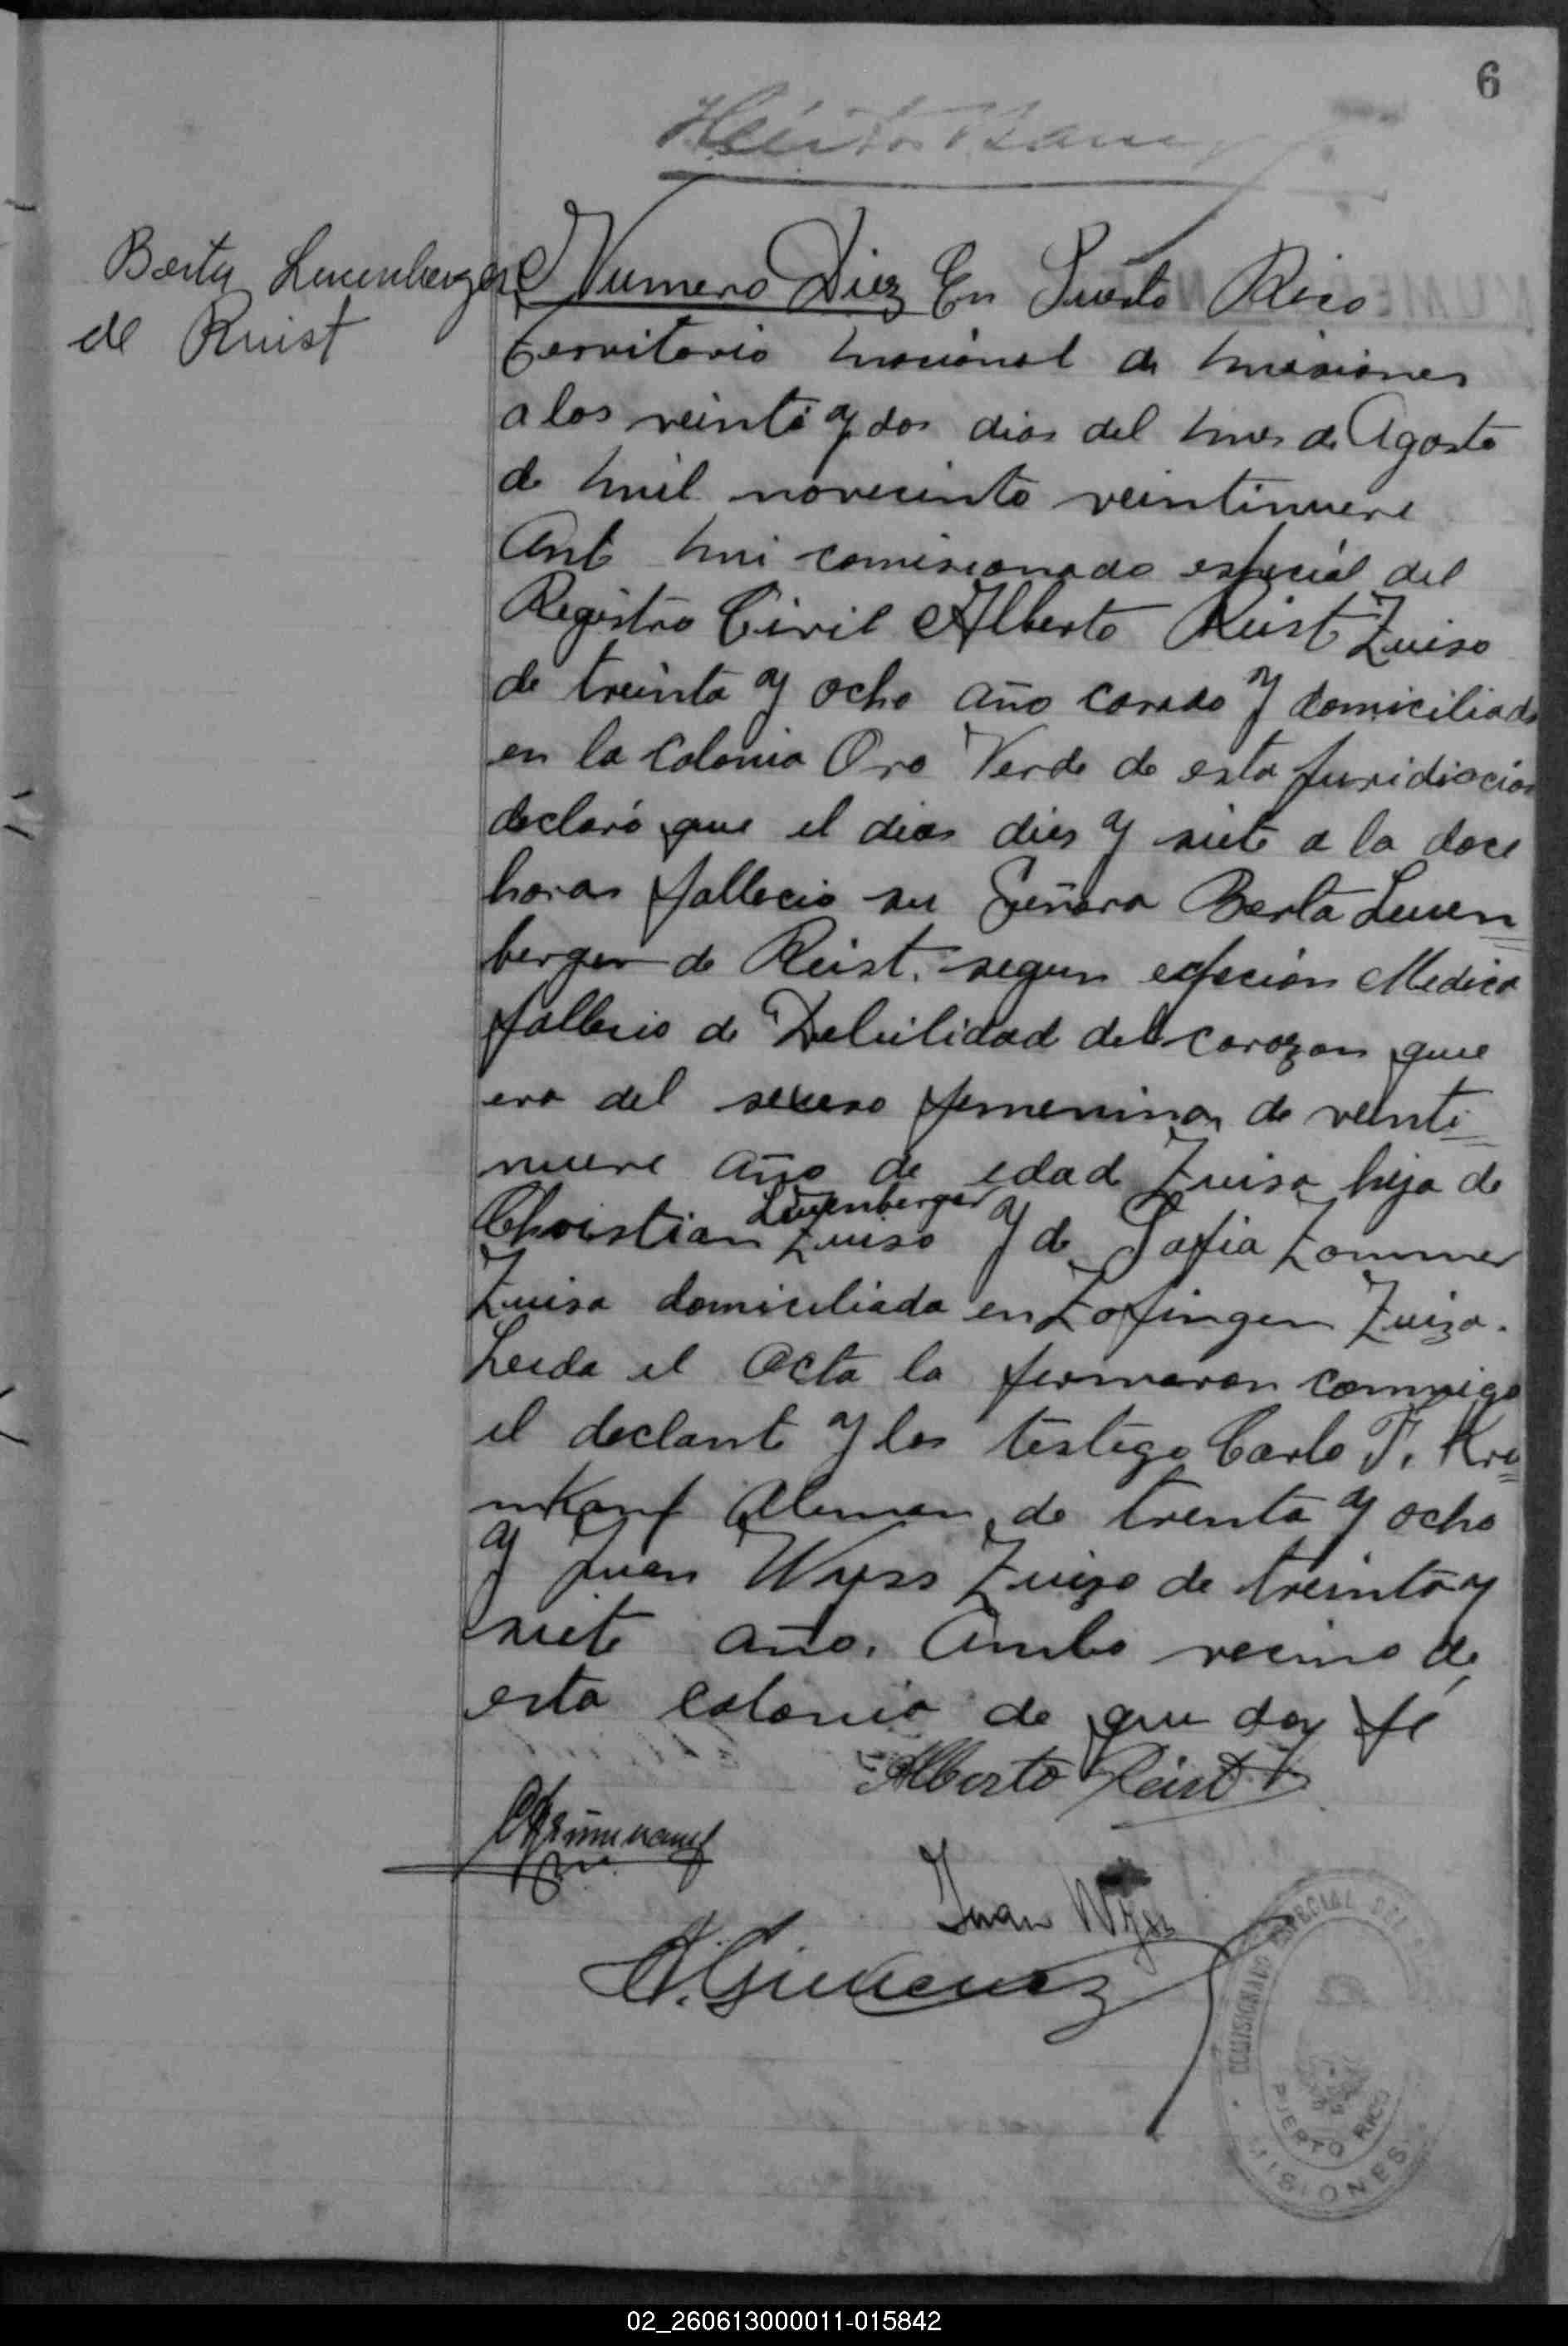 6
Berta Leuenberger
de Reist
Numero Diez En Puerto Rico
territorio nacional de misiones
a los veinte y dos dias del mes de Agosto
de mil noveciento veintinueve
Ante mi comisionado especial del
Registro Civil Alberto Reist Zuiso
de treinta y ocho año casado y domiciliado
en la Colonia Oro Verde de esta Juridiscion
declaró que el dias dies y siete a la doce
horas fallecio su Señora Berta Leuen=
berger de Reist. segun Medica
fallecio de Debilidad del corazon que
era del sexeso femenino, de veinti=
nueve año de edad Zuisa hija de
Leuenberger
Christian Zuiso y de Sofia Zommer
Zuisa domiciliada en Zofingen Zuiza.
Leida el Acta la firmaron conmigo
el declante y los testigo Carlo F. Kru=
mkamf Aleman, de trenta y ocho
y Juan Wyss Zuizo de treinta y
siete año. Ambo vecino de
esta colonia de que doy fé
Alberto Reist
Juan Wyss
A. Gimenez
COMISIONADO ESPECIAL DEL
PUERTO RICO
MISIONES
02_260613000011-015842